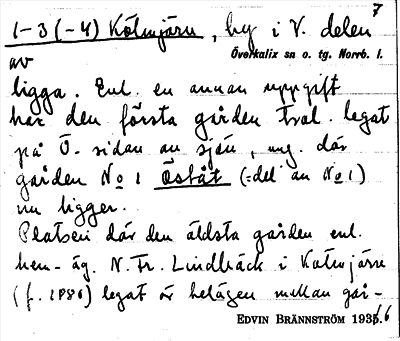 7
1-3 (-4) Kölmjärv, by i V. delen
Överkalix sn o. tg. Norrb. l.
av
ligga. Enl. en annan uppgift
har den första gården trol. legat
på Ö.-sidan av sjön, ung. där
gården No 1 Öståt (=del av No 1)
nu ligger.
Platsen där den äldsta gården enl.
hem.-äg. N. Fr. Lindbäck i Kölmjärv
(f. 1886) legat är belägen mellan går-
EDVIN BRÄNNSTRÖM 1935.